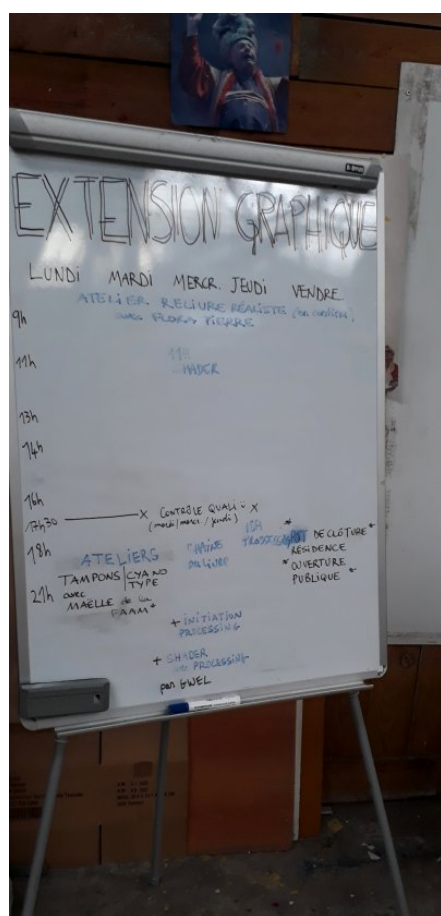 EXTENSION GRAPHIQUE
LUNDI MARDI MERCR. JEUDI VENDRE.
ATELIER RELIURE RÉALISTE
avec FLORS PIERRE
9h
11h
11h
SHADER
13h
14h
16h
17h30 X CONTRÔLE QUALI X
(mardi/mercr./jeudi)
18h
18h
ATELIERS
TAMPONS/CYANOTYPE
avec
MAËLLE de la
FAAM*
21h
CHAÎNE
DU LIVRE
* DE CLÔTURE*
RÉSIDENCE
* OUVERTURE
PUBLIQUE *
+ INITIATION
PROCESSING
+ SHADER
PROCESSING
par GWEL